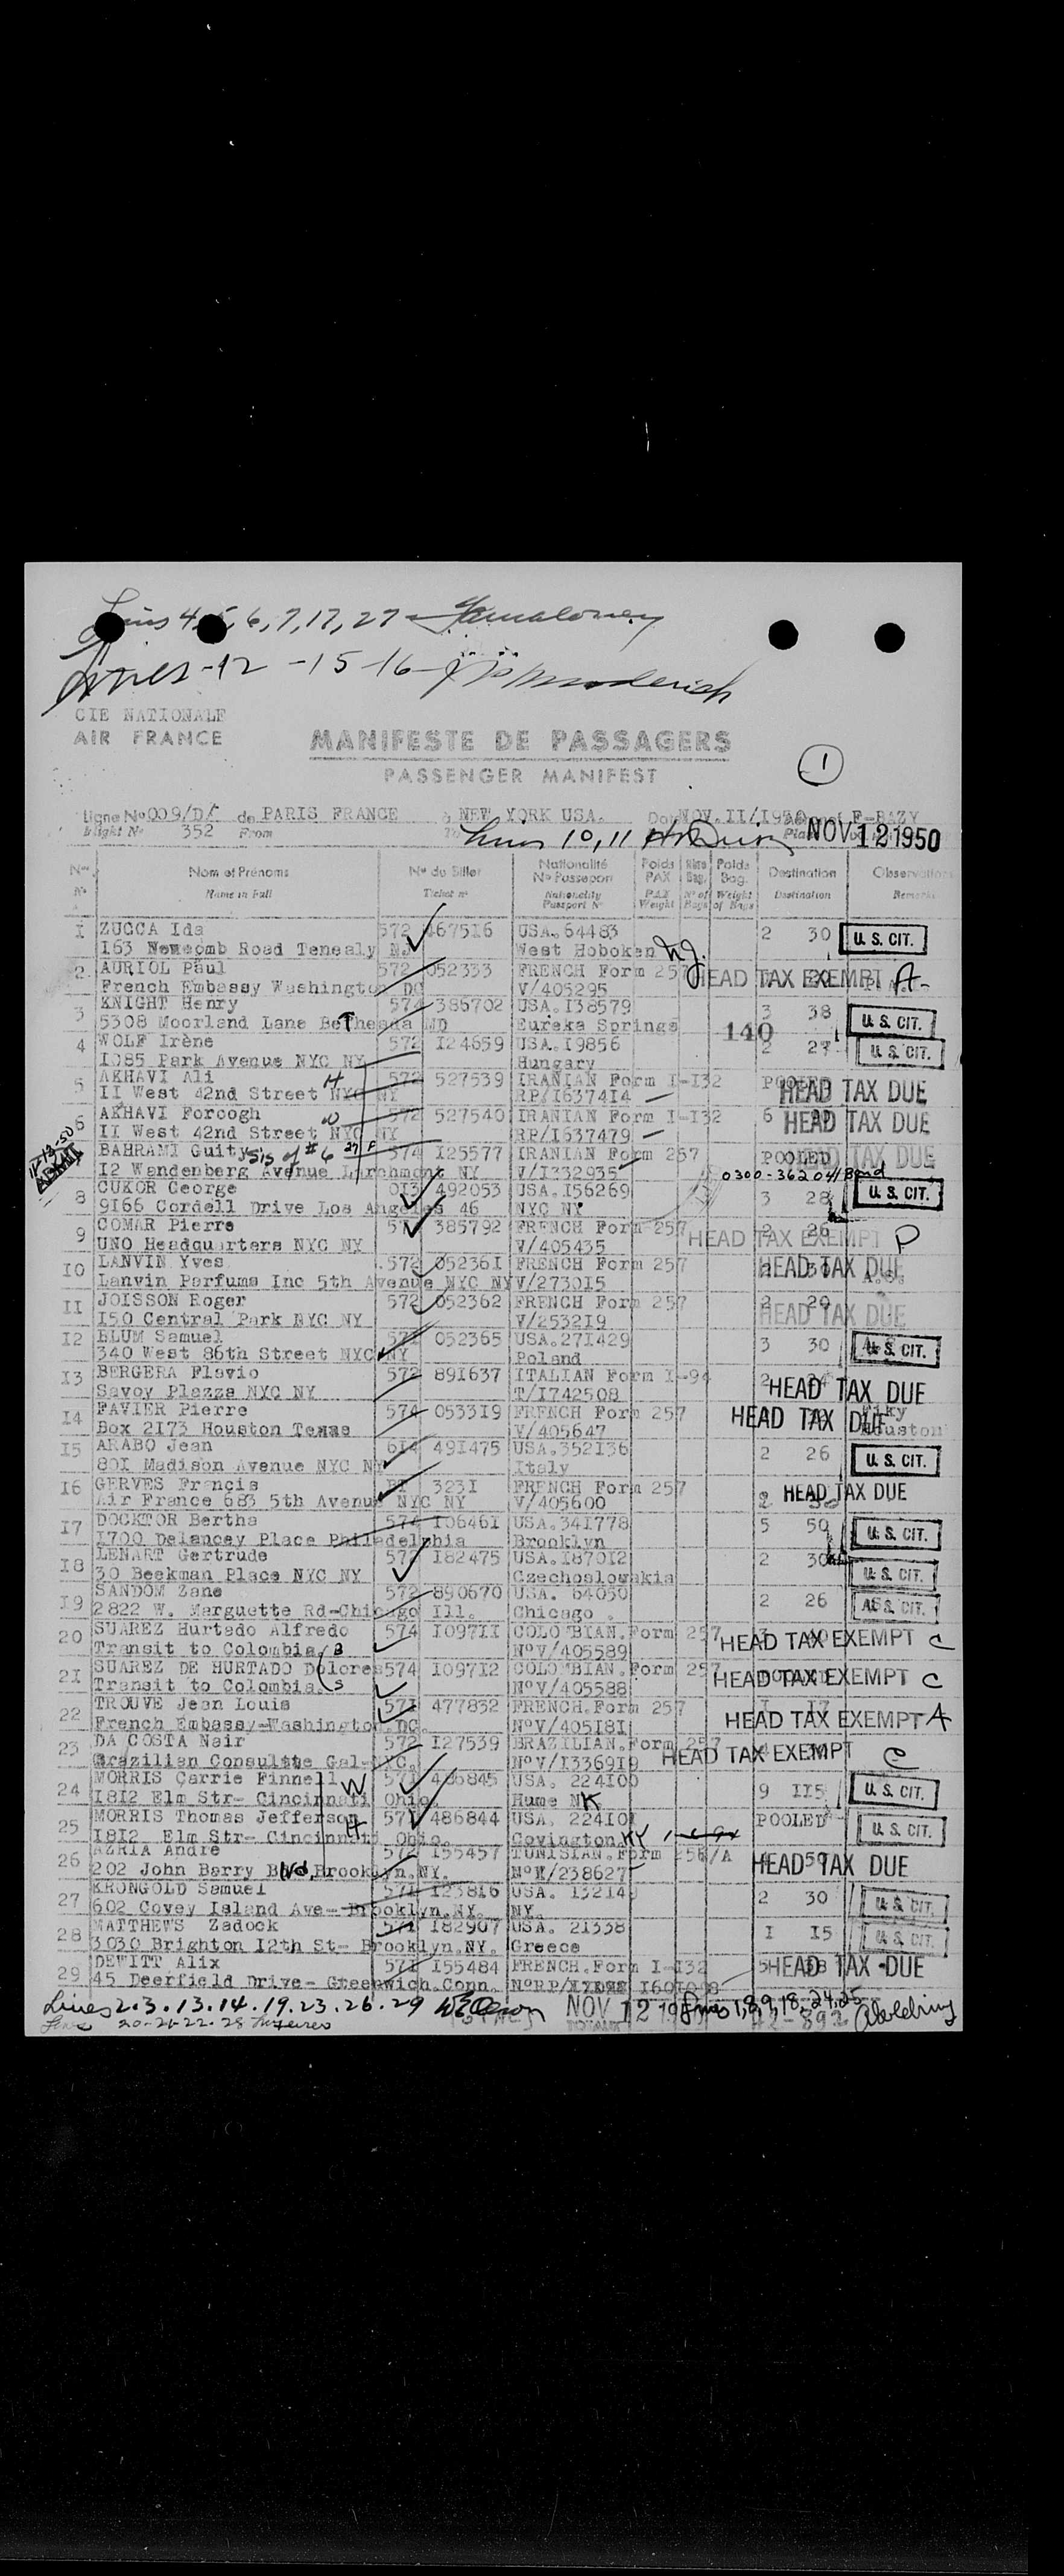 Lines 4, 5, 6, 7, 17, 27
Lines - 12 - 15 - 16 -
CIE NATIONALE
AIR FRANCE
MANIFESTE DE PASSAGERS
PASSENGER MANIFEST
1
Ligne No 009/DK de PARIS FRANCE à NEW YORK USA. NOV.II/1950 F-BAZY
Flight No 352 From To NOV 12 1950
Lines 10, 11
Nos Nom et Prénoms No du Billet Nationalité No Passeport Poids PAX Nbre Bag. Poids Bag. Destination Observations
No. Name in Full Ticket no Nationality Passport No PAX Weight No of Bags Weight of Bags Destination Remarks
I ZUCCA Ida 572 467516 USA.64483 2 30 U. S. CIT.
I63 Newcomb Road Tenealy NJ West Hoboken N.J.
2 AURIOL Paul 572 052333 FRENCH Form 257 HEAD TAX EXEMPT A-
French Embassy Washington DC V/405295
3 KNIGHT Henry 574 386702 USA.I38579 3 38 U. S. CIT.
5308 Moorland Lane BeThesda MD Eureka Springs 140
4 WOLF Irène 572 I24659 USA.I9856 2 27 U. S. CIT.
I085 Park Avenue NYC NY Hungary
5 AKHAVI Ali H 572 527539 IRANIAN Form I-I32 POOLED HEAD TAX DUE
II West 42nd Street NYC NY RP/I637414
6 AKHAVI Forcogh W 572 527540 IRANIAN Form I-I32 6 HEAD TAX DUE
II West 42nd Street NYC NY RP/I637479
BAHRAMI Guity Sis of #6 27 F 574 I25577 IRANIAN Form 257 POOLED HEAD TAX DUE
I2 Wendenberg Avenue Larchmont NY V/I332935 0300-36204/Bond
11-13-50 ADMIT
8 CUKOR George 0I3 492053 USA.I56269 3 28 U. S. CIT.
9I66 Cordell Drive Los Angeles 46 NYC NY
9 COMAR Pierre 57 385792 FRENCH Form 257 2 26 HEAD TAX EXEMPT P
UNO Headquarters NYC NY V/405435
I0 LANVIN Yves 572 05236I FRENCH Form 257 HEAD TAX DUE
Lanvin Parfums Inc 5th Avenue NYC NY V/2730I5
II JOISSON Roger 572 052362 FRENCH Form 257 2 29 HEAD TAX DUE
I50 Central Park NYC NY V/2532I9
I2 BLUM Samuel 572 052365 USA.27I429 3 30 U. S. CIT.
340 West 86th Street NYC NY Poland
I3 BERGERA Flavio 572 89I637 ITALIAN Form I-94 2 HEAD TAX DUE
Savoy Plazza NYC NY T/I742508
I4 FAVIER Pierre 574 0533I9 FRENCH Form 257 HEAD TAX DUE
Box 2I73 Houston Texas V/405647 Houston
I5 ARABO Jean 6I4 49I475 USA.352I36 2 26 U. S. CIT.
80I Madison Avenue NYC NY Italy
I6 GERVES Francis BT 323I FRENCH Form 257 HEAD TAX DUE
Air France 683 5th Avenue NYC NY V/405600 2 30
I7 DOCKTOR Bertha 574 I0646I USA.34I778 5 50 U. S. CIT.
I700 Delancey Place Philadelphia Brooklyn
I8 LENART Gertrude 572 I82475 USA.I870I2 2 30 U. S. CIT.
30 Beekman Place NYC NY Czechoslowakia
I9 SANDOM Zane 572 890670 USA. 64050 2 26 U. S. CIT.
2822 W. Marguette Rd-Chicago Ill. Chicago .
20 SUAREZ Hurtado Alfredo 574 I097II COLO BIAN.Form 257 HEAD TAX EXEMPT C
Transit to Colombia. B NoV/405589
2I SUAREZ DE HURTADO Dolores 574 I097I2 COLO BIAN.Form 257 HEAD TAX EXEMPT C
Transit to Colombia. S NoV/405588
22 TROUVE Jean Louis 57I 477832 FRENCH.Form 257 I I7 HEAD TAX EXEMPT A
French Embassy-Washington.DC. NoV/405I8I
23 DA COSTA Nair 572 I27539 BRAZILIAN.Form 257 HEAD TAX EXEMPT C
Brazilian Consulate Gal-NYC. NoV/I3369I9
24 MORRIS Carrie Finnell W 57 486845 USA. 224I00 9 II5 U. S. CIT.
I8I2 Elm Str- Cincinnati Ohio. Hume NK
25 MORRIS Thomas Jefferson H 57I 486844 USA. 224I0I POOLED U. S. CIT.
I8I2 Elm Str- Cincinnati Ohio. Covington.KY
26 AZRIA André 572 I55457 TUNISIAN.Form 256/A HEAD TAX DUE
202 John Barry Blvd, Brooklyn.NY. NoE/238627
27 KRONGOLD Samuel 574 I23816 USA. I32I49 2 30 U. S. CIT.
602 Covey Island Ave- Brooklyn.NY. NY.
28 MATTHEWS Zadock 57I I82907 USA. 2I338 I I5 U. S. CIT.
3030 Brighton I2th St- Brooklyn.NY. Greece
29 DEWITT Alix 57I I55484 FRENCH.Form I-I32 5 HEAD TAX DUE
45 Deerfield Drive- Greenwich.Conn. NoRP/
Lines 2.3.13.14.19.23.26.29 NOV 12 Lines 1,8,9,18,24,25
Lines 20-21-22-28